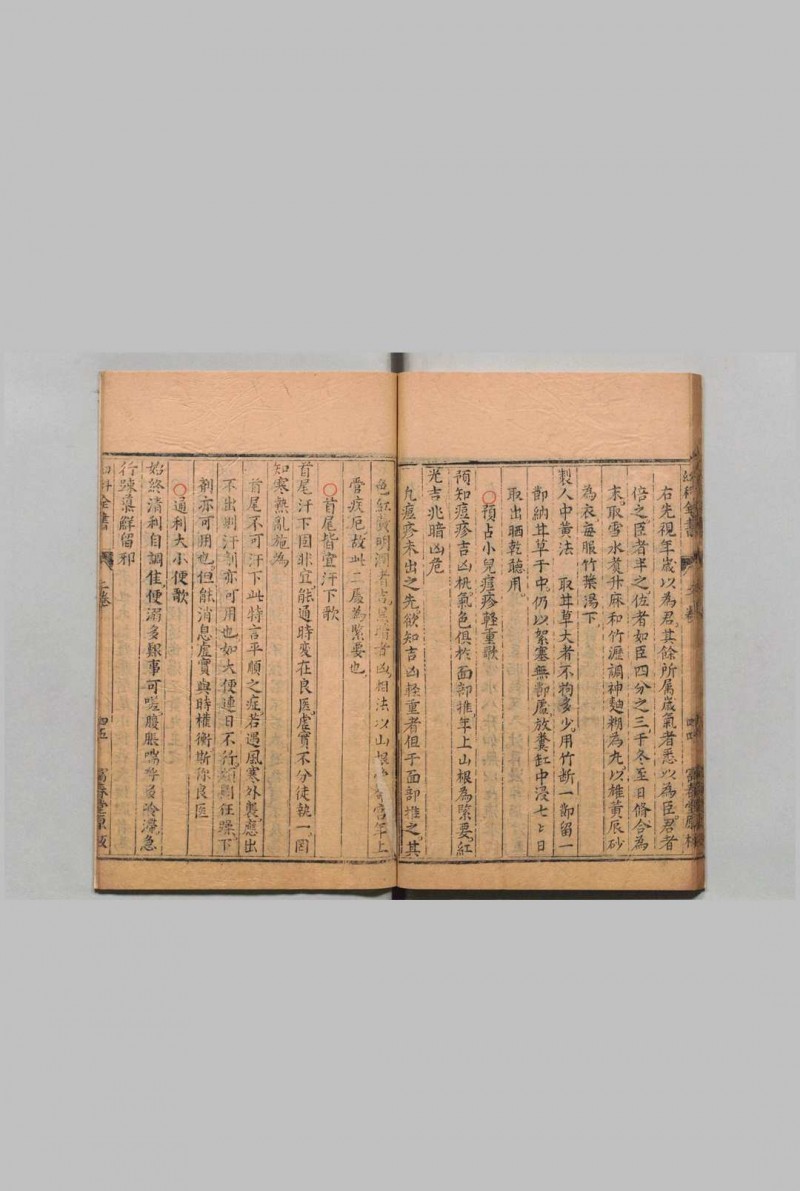 右先視年歲以為君其餘所屬歲氣者悉以為臣君者
倍之臣者半之佐者如臣四分之三于冬至日脩合為
末取雪水煑升麻和竹瀝調神麯糊為丸以雄黃辰砂
為衣每服竹葉湯下
製人中黃法 取茸草大者不拘多少用竹斷一節留一
節納茸草于中仍以絮塞無節處放糞缸中浸七七日
取出晒乾聽用
〇預占小兒痘疹輕重歌
預知痘疹吉凶桃氣色俱於面部推年上山根為緊要紅
光吉兆暗凶危
凡痘疹未出之先欲知吉凶輕重者但于面部推之其
色紅明潤者吉者凶相法以山根年上
疾厄故此二處為緊要也
〇首尾皆宜汗下歌
首尾汗下固非宜能通時変在良医虛實不分徒執一罔
知寒熱亂施為
首尾不可汗下此特言平順之症若遇風寒外襲應出
不出則汗劑亦可用也如大便連日不行煩剧狂躁下
劑亦可用也但能消息虛實與時權衡斯為良医
〇通利大小便歌
始終清利自調佳便溺多艱事可嗟腹脹喘呼多冷澀急
行踈滇鮮留邪
幼科全書 上卷 四五 富春堂原板